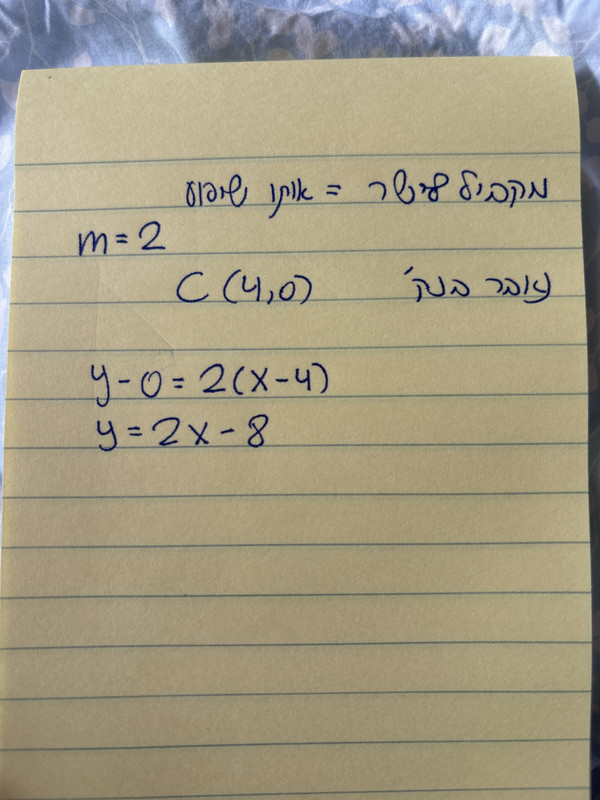 מקביל לישר = אותו שיפוע
m = 2
עובר בנק' C (4,0)
y - 0 = 2(x - 4)
y = 2x - 8